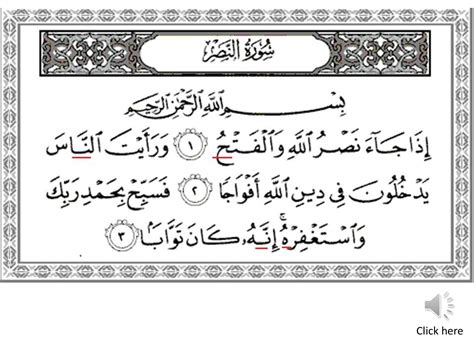 سُورَةُ النَّصْرِ
بِسْمِ اللَّهِ الرَّحْمَٰنِ الرَّحِيمِ
إِذَا جَآءَ نَصْرُ اللَّهِ وَالْفَتْحُ ١ وَرَأَيْتَ النَّاسَ
يَدْخُلُونَ فِي دِينِ اللَّهِ أَفْوَاجًا ٢ فَسَبِّحْ بِحَمْدِ رَبِّكَ
وَاسْتَغْفِرْهُ ۚ إِنَّهُ كَانَ تَوَّابًا ٣
Click here